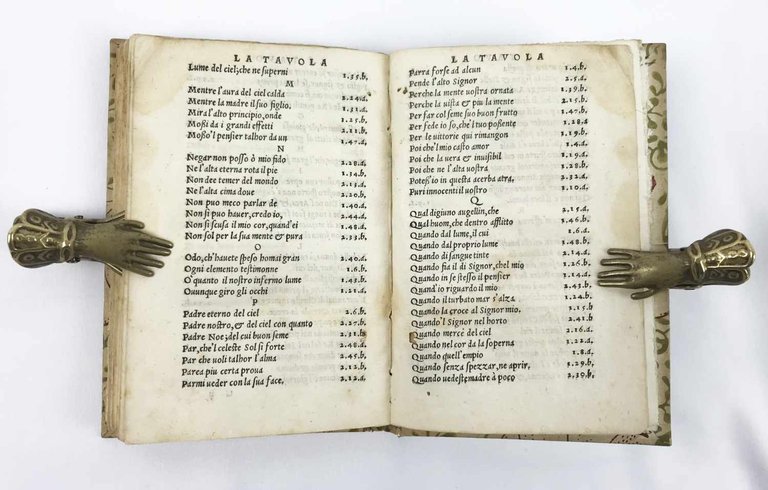 LA TAVOLA
Lume del ciel; che ne superni 1.35.b.
M
Mentre l'aura del ciel calda 2.29.a.
Mentre la madre il suo figlio. 1.31.a.
Mira l'alto principio, onde 1.25.b.
Moßi da i grandi effetti 2.11.b.
Moßo'l pensier talhor da un 1.47.a.
N
Negar non posso ò mio fido 2.28.a.
Ne l'alta eterna rota il pie 1.34.b.
Non dee temer del mondo 2.13.a.
Ne l'alta cima doue 2.20.b.
Non puo meco parlar de 1.40.a.
Non si puo hauer, credo io, 2.44.a.
Non si scusa il mio cor, quand'ei 1.48.a.
Non sol per la sua mente & pura 2.33.b.
O
Odo, ch'hauete speso homai gran 2.40.a.
Ogni elemento testimonne 1.6.b.
O' quanto il nostro infermo lume 1.45.b.
Ouunque giro gli occhi 1.21.a.
P
Padre eterno del ciel 2.6.b.
Padre nostro, & del ciel con quanto 2.27.b.
Padre Noe; del cui buon seme 2.31.b.
Par, che'l celeste Sol si forte 2.48.a.
Par che uoli talhor l'alma 2.45.b.
Parea piu certa proua 2.11.b.
Parmi ueder con la sua face, 2.12.a.
LA TAVOLA
Parra forse ad alcun 1.4.b.
Pende l'alto Signor 2.5.a.
Perche la mente uostra ornata 1.39.b.
Perche la uista & piu la mente 2.15.b.
Per far col seme suo buon frutto 1.47.b.
Per fede io so, che'l tuo poßente 1.28.a
Per le uittorie qui rimangon 1.19.b.
Poi che'l mio casto amor 1.4.b.
Poi che la uera & inuisibil 1.19.a.
Poi che ne l'alta uostra 1.28.a.
Poteß'io in questa acerba atra, 2.32.b.
Puri innocenti il uostro 1.10.a.
Q
Qual digiuno augellin, che 2.15.a.
Qual huom, che dentro afflitto 5.46.b.
Quando dal lume, il cui 1.6.a.
Quando dal proprio lume 1.48.b.
Quando di sangue tinte 2.4.a.
Quando fia il di Signor, chel mio 1.26.b.
Quando in se stesso il pensier 1.14.b.
Quand'io riguardo il mio 1.31.a.
Quando il turbato mar s'alza 1.24.b.
Quando la croce al Signor mio. 1.15.b.
Quando'l Signor nel horto 2.41.b
Quando mercè del ciel 2.16.a.
Quando nel cor da la soperna 1.22.a.
Quando quell'empio 1.8.a.
Quando senza spezzar, ne aprir, 5.29.b.
Quando uedeste, madre à poco 2.30.b.